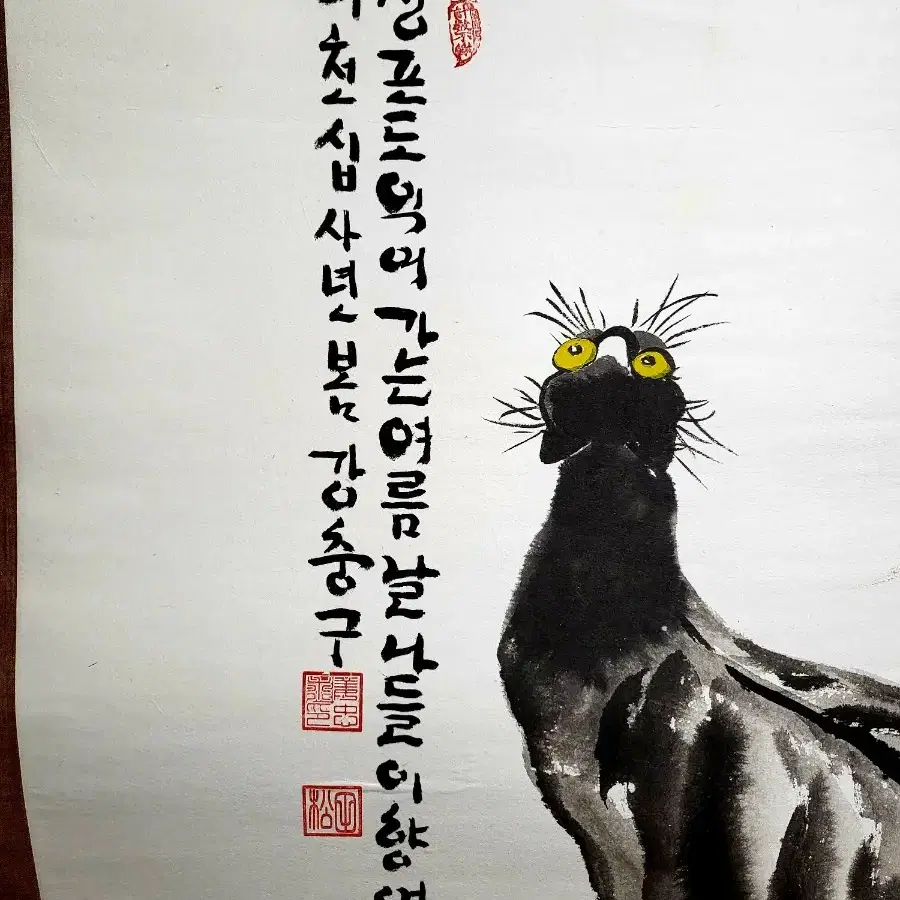 포도익어가는여름날나들이향
천십사년봄강충구